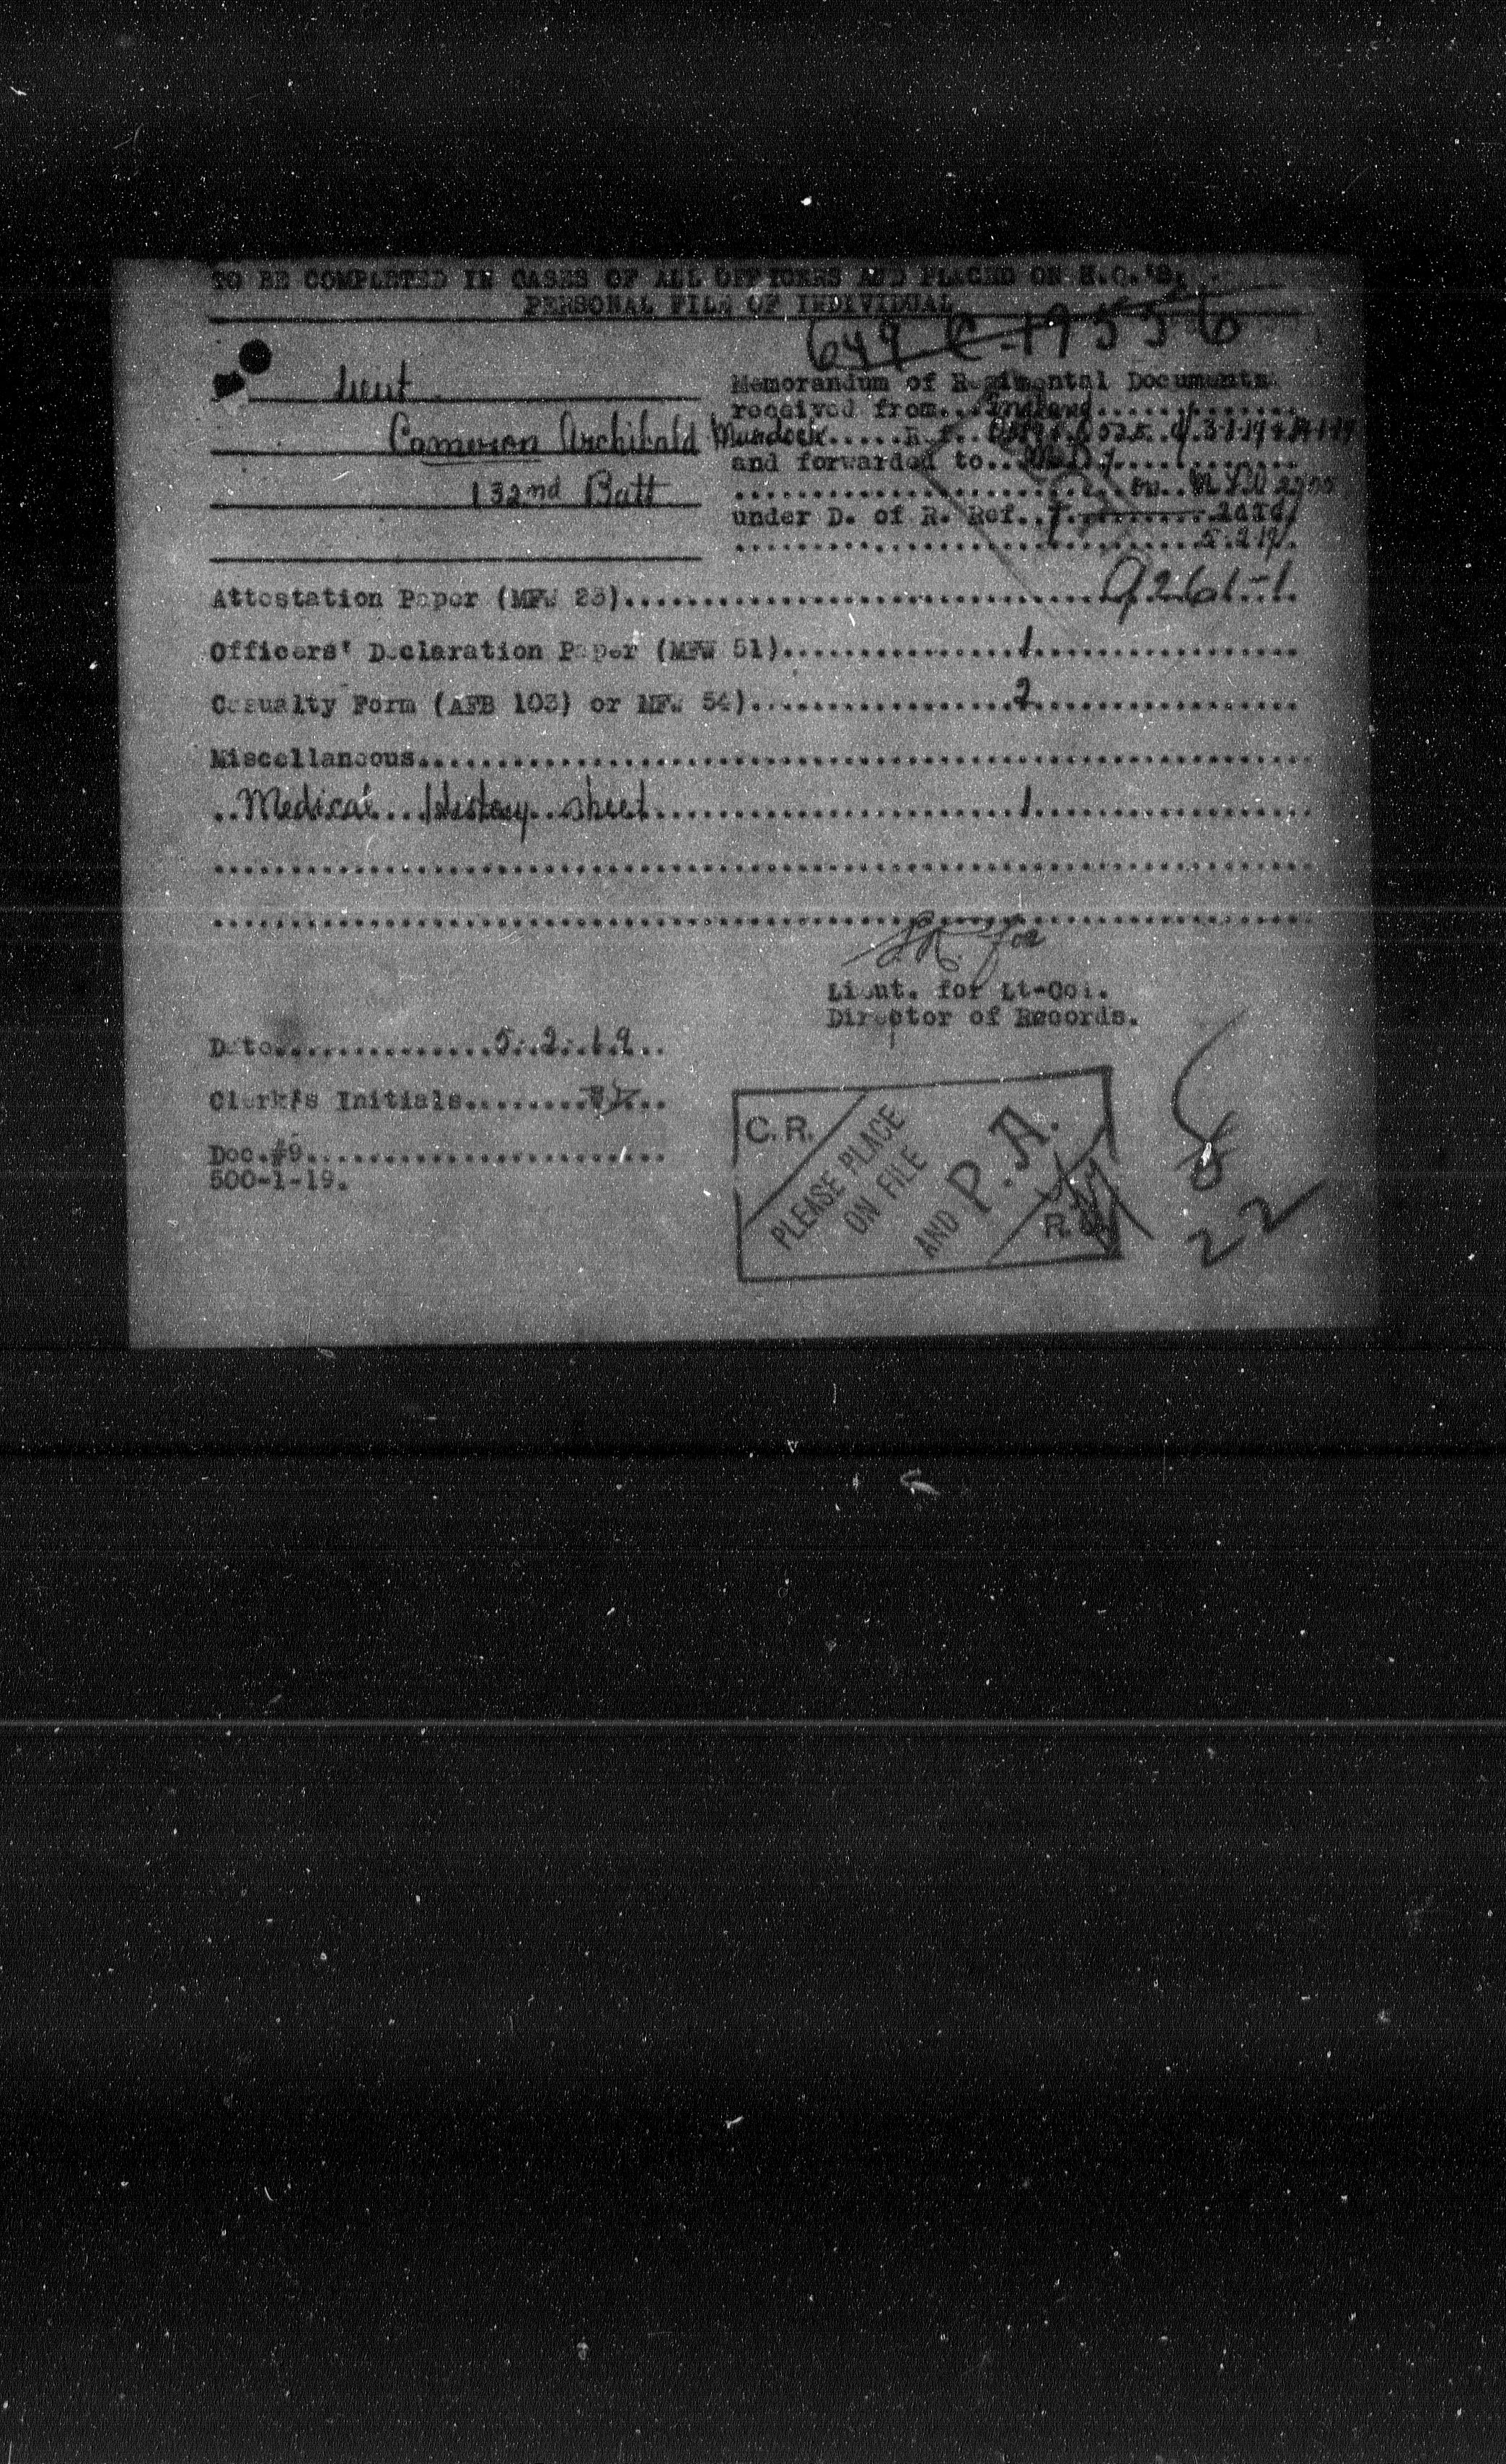 TO BE COMPLETED IN CASES OF ALL OFFICERS AND PLACED ON H.Q.'S.
PERSONAL FILE OF INDIVIDUAL
649 C-19556
Lieut.
Cameron Archibald Murdock
132nd Batt
Memorandum of Regimental Documents
received from...England
Ref.
and forwarded to..
under D. of R. Ref..
5.2.19
9261-1
Attestation Paper (MFW 23)
Officers' Declaration Paper (MFW 51) 1
Casualty Form (AFB 103) or MFW 54) 2
Miscellaneous
Medical History sheet 1
for
Lieut. for Lt-Col.
Director of Records.
Date 5.2.19
Clerk's Initials
Doc.#9
500-1-19.
C.R.
PLEASE PLACE
ON FILE
AND P.A.
R.
22